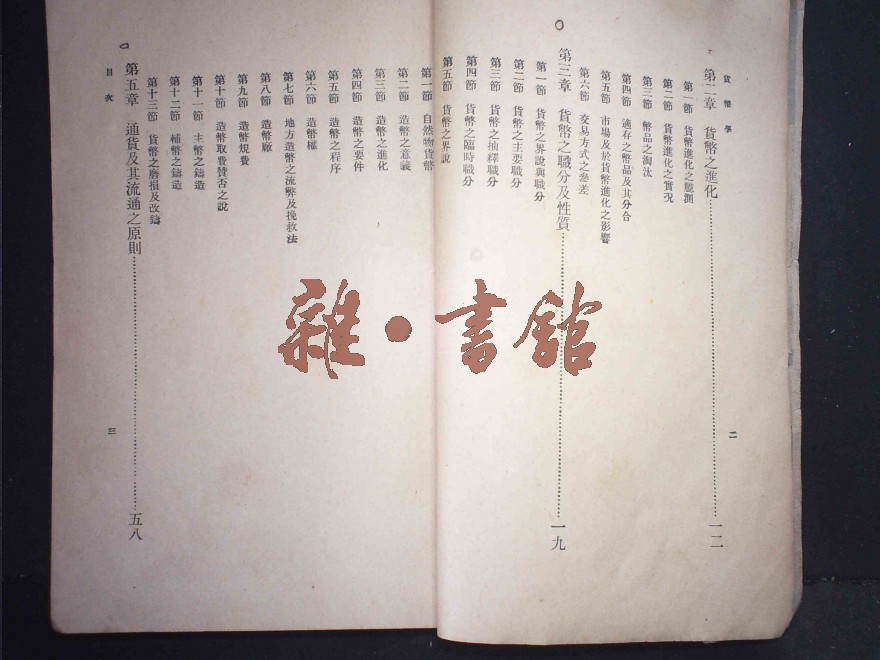 貨幣學
第二章　貨幣之進化…………一二
第一節　貨幣進化之臆測
第二節　貨幣進化之實況
第三節　幣品之淘汰
第四節　適存之幣品及其分合
第五節　市場及於貨幣進化之影響
第六節　交易方式之參差
第三章　貨幣之職分及性質…………一九
第一節　貨幣之界說與職分
第二節　貨幣之主要職分
第三節　貨幣之抽繹職分
第四節　貨幣之臨時職分
第五節　貨幣之界說
二
第一節　自然物貨幣
第二節　造幣之意義
第三節　造幣之進化
第四節　造幣之要件
第五節　造幣之程序
第六節　造幣權
第七節　地方造幣之流弊及挽救法
第八節　造幣廠
第九節　造幣規費
第十節　造幣取費贊否之說
第十一節　主幣之鑄造
第十二節　補幣之鑄造
第十三節　貨幣之磨損及改鑄
第五章　通貨及其流通之原則…………五八
目次
三
雜·書館